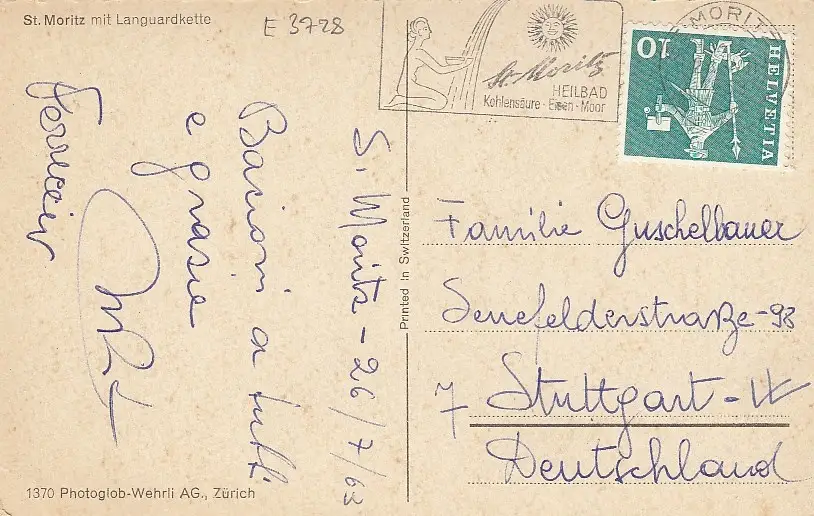 St. Moritz mit Languardkette
E 3728
St. Moritz
HEILBAD
Kohlensäure · Eisen · Moor
MORITZ
10
HELVETIA
S. Moritz - 26/7/63
Bacioni a tutti
e grazie
Printed in Switzerland
Familie Guschelbauer
Senefelderstraße - 93
7 Stuttgart - W
Deutschland
1370 Photoglob-Wehrli AG., Zürich